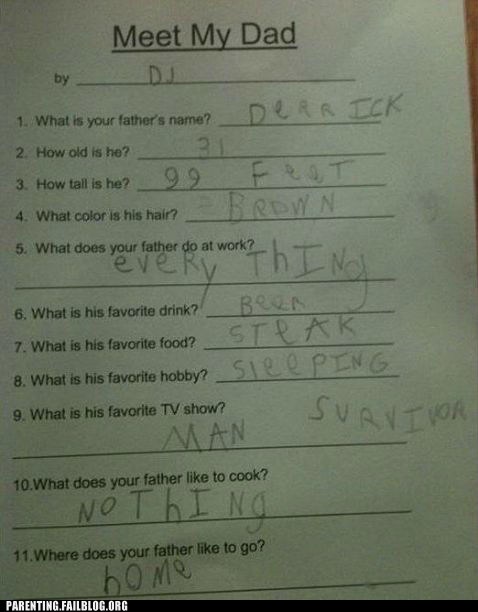 Meet My Dad
by DJ
1. What is your father's name? DeRRICK
2. How old is he? 31
3. How tall is he? 99 FeeT
4. What color is his hair? BROWN
5. What does your father do at work?
eveRy ThINg
6. What is his favorite drink? BeeR
7. What is his favorite food? STeAK
8. What is his favorite hobby? SleePING
9. What is his favorite TV show? SURVIVOR
MAN
10.What does your father like to cook?
NOThINg
11.Where does your father like to go?
hOMe
PARENTING.FAILBLOG.ORG